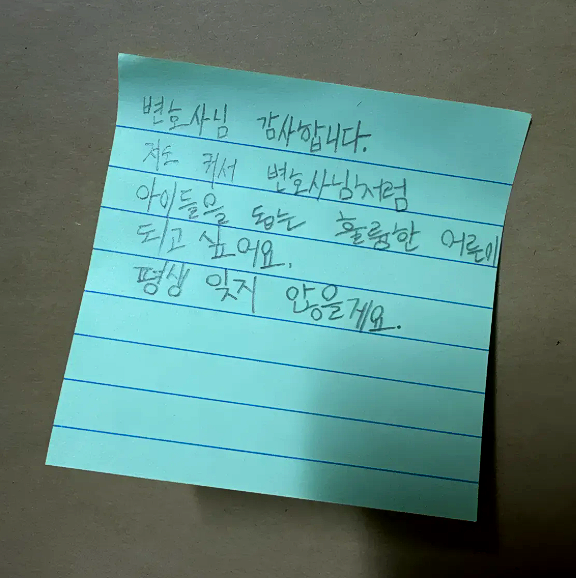 변호사님 감사합니다.
저도 커서 변호사님처럼
아이들을 돕는 훌륭한 어른이
되고 싶어요.
평생 잊지 않을게요.